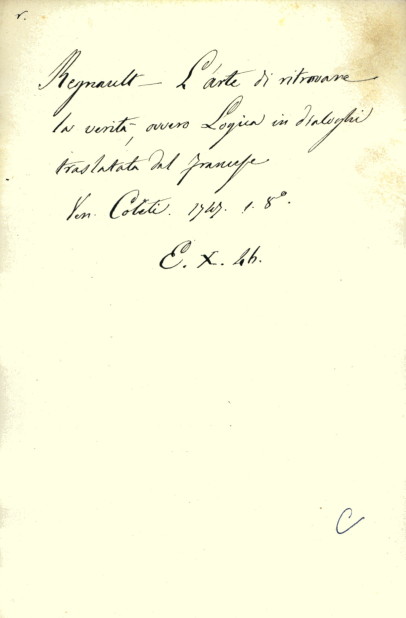 r.
Regnault — L'arte di ritrovare
la verità, ovvero Logica in dialoghi
traslatata dal Francese
Ven. Coleti. 1747. 1. 8°.
E. X. 46.
C